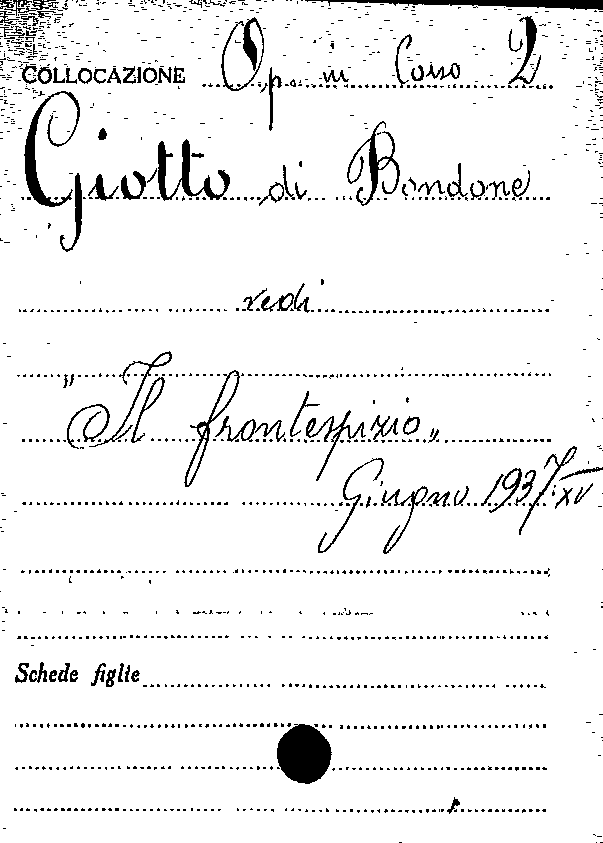 COLLOCAZIONE Op. in Corso 2
Giotto di Bondone
vedi
"Il frontespizio„
Giugno 1937.XV
Schede figlie